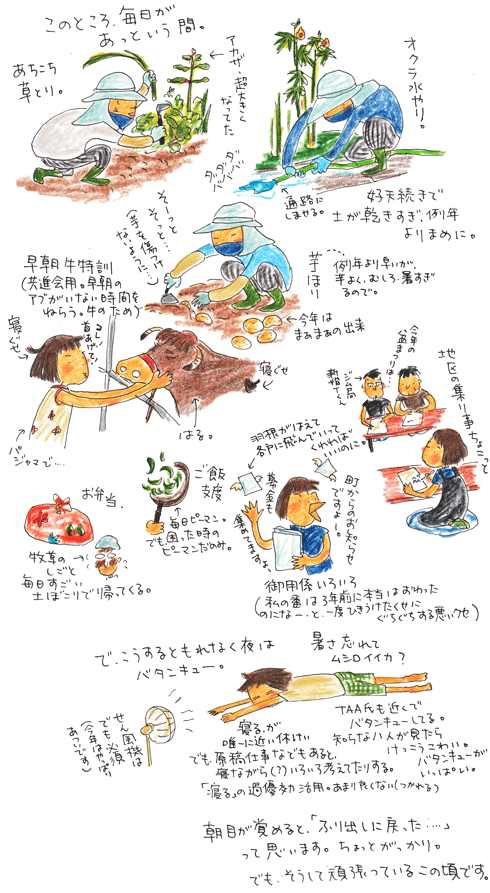 このところ、毎日が
あっという間。
あちこち
草とり。
アカザ・超大きく
なってた
オクラ水やり。
ダダダ
バーバーバー
通路に
しませる。
好天続きで
土が乾きすぎ、例年
よりまめに。
そーっと
そーっと…
(芋を傷つけ
ないよって…)
芋ほり
例年より早いが、
芋よく、むしろ暑すぎ
るので。
今年は
まあまあの出来
早朝 牛特訓
(共進会用。早朝の
アブがいない時間を
ねらう。牛のため)
寝ぐせ
首あげて!
パジャマで…
はる。
寝ぐせ
地区の集り事ちょこっと
今年の
盆まつりは…
ジム局
新婚さくん
お弁当、
牧草の
しごと
毎日すごい
土ぼこりで帰ってくる。
ご飯
支度
毎日ピーマン。
でも困った時の
ピーマンだのみ。
羽根がはえて
各戸に飛んでいって
くれれば
いいのに。
募金も
集めてますよ
町からのお知らせ
ですよー。
御用係いろいろ
(私の番は3年前に本当はおわった
のになー、と、一度ひきうけたくせに
ぐちぐちする悪いクセ)
で、こうするともれなく夜は
バタンキュー。
暑さ忘れて
ムシロイイカ?
せん風機は
でも必須
(今年はやっぱり
あつい)
寝る、が
唯一に近い休けい
でも原稿仕事などもあると、
寝ながら(?)いろいろ考えてたりする。
「寝る」の過優効活用。あまり良くない(つかれる)
TAA氏も近くで
バタンキューしてる。
知らない人が見たら
けっこうこわい。
バタンキューが
いっぱい。
朝目が覚めると、「ふり出しに戻った……」
って思います。ちょっとがっかり。
でも、そうして頑張っているこの頃です。